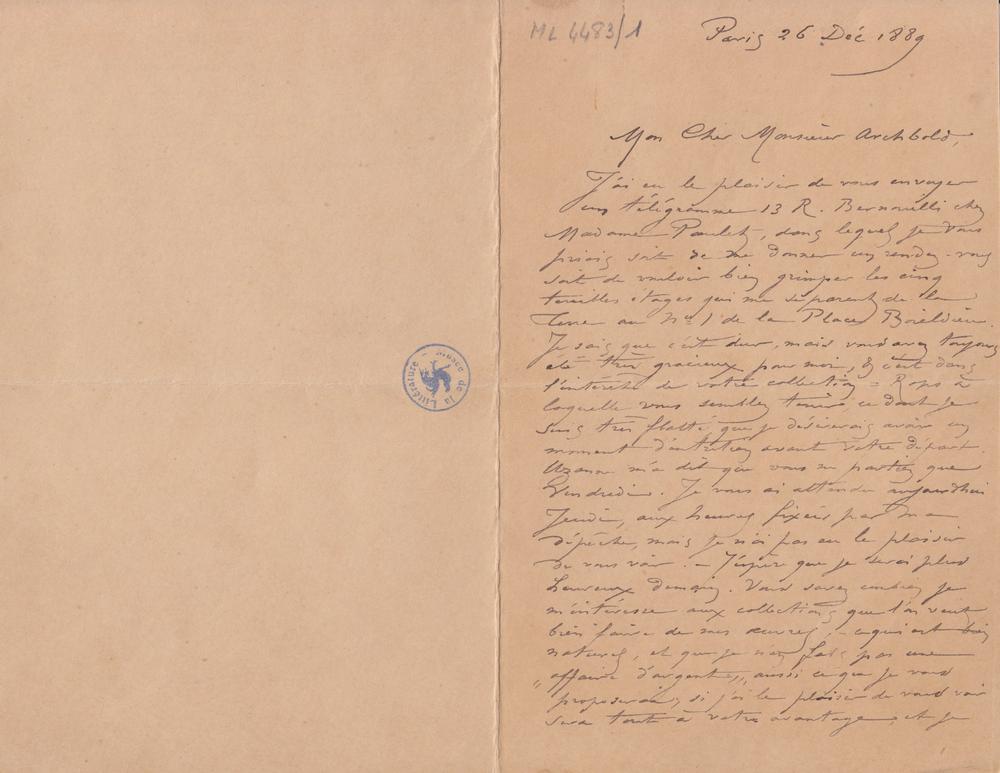 ML 4483/1
Paris 26 Déc 1889
Mon Cher Monsieur Archbold,
J'ai eu le plaisir de vous envoyer
un télégramme 13 R. Bernouilli chez
Madame Paulet, dans lequel je vous
priais soit de me donner un rendez-vous
soit de vouloir bien grimper les cinq
terribles étages qui me séparent de la
Terre au No 1 de la Place Boieldieu.
Je sais que c'est dur, mais vous avez toujours
été très gracieux pour moi, & c'est dans
l'interêt de votre collection = Rops à
laquelle vous semblez tenir, ce dont je
suis très flatté que je désirerais avoir un
moment d'entretien avant votre départ.
Uzanne m'a dit que vous ne partiez que
Vendredi. Je vous ai attendu aujourdhui
Jeudi, aux heures fixées par ma
dépêche, mais je n'ai pas eu le plaisir
de vous voir. – J'espère que je serai plus
heureux demain. Vous savez combien je
m'intéresse aux collections que l'on veut
bien faire de mes œuvres, – ce qui est bien
naturel, et que je n'en fais pas une
„affaire d'argent„, aussi ce que je vous
proposerai, si j'ai le plaisir de vous voir
sera tout à votre avantage, et je
Musée de la Littérature